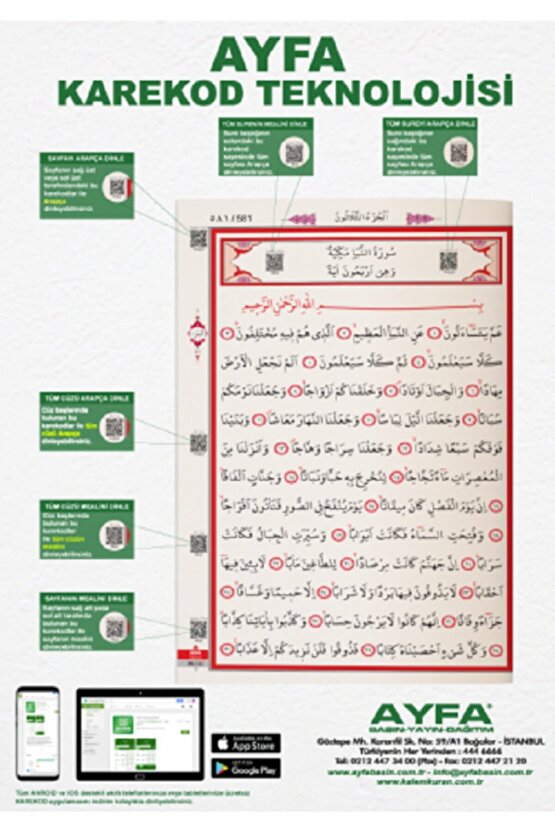 AYFA
KAREKOD TEKNOLOJİSİ
TÜM SURENİN MEALİNİ DİNLE
Sure başlığının
solundaki bu
karekod
sayesinde tüm
sayfayı Arapça
dinleyebilirsiniz.
TÜM SUREYİ ARAPÇA DİNLE
Sure başlığının
sağındaki bu
karekod
sayesinde tüm
sayfayı Arapça
dinleyebilirsiniz.
SAYFAYI ARAPÇA DİNLE
Sayfanın sağ üst
veya sol üst
tarafındaki bu
karekodlar ile
Arapça
dinleyebilirsiniz.
٥٨١ / 581
اَلْجُزْءُ الثَّلَاثُونَ
سُورَةُ النَّبَأِ مَكِّيَّةٌ
وَهِيَ اَرْبَعُونَ اٰيَةً
بِسْمِ اللّٰهِ الرَّحْمٰنِ الرَّحِيمِ
عَمَّ يَتَسَٓاءَلُونَ ﴿١﴾ عَنِ النَّبَأِ الْعَظِيمِ ﴿٢﴾ اَلَّذِي هُمْ فِيهِ مُخْتَلِفُونَ ﴿٣﴾
كَلَّا سَيَعْلَمُونَ ﴿٤﴾ ثُمَّ كَلَّا سَيَعْلَمُونَ ﴿٥﴾ اَلَمْ نَجْعَلِ الْاَرْضَ
مِهَادًا ﴿٦﴾ وَالْجِبَالَ اَوْتَادًا ﴿٧﴾ وَخَلَقْنَاكُمْ اَزْوَاجًا ﴿٨﴾ وَجَعَلْنَا نَوْمَكُمْ
سُبَاتًا ﴿٩﴾ وَجَعَلْنَا الَّيْلَ لِبَاسًا ﴿١٠﴾ وَجَعَلْنَا النَّهَارَ مَعَاشًا ﴿١١﴾ وَبَنَيْنَا
فَوْقَكُمْ سَبْعًا شِدَادًا ﴿١٢﴾ وَجَعَلْنَا سِرَاجًا وَهَّاجًا ﴿١٣﴾ وَاَنْزَلْنَا مِنَ
الْمُعْصِرَاتِ مَٓاءً ثَجَّاجًا ﴿١٤﴾ لِنُخْرِجَ بِهِ حَبًّا وَنَبَاتًا ﴿١٥﴾ وَجَنَّاتٍ اَلْفَافًا
﴿١٦﴾ اِنَّ يَوْمَ الْفَصْلِ كَانَ مِيقَاتًا ﴿١٧﴾ يَوْمَ يُنْفَخُ فِي الصُّورِ فَتَأْتُونَ اَفْوَاجًا
﴿١٨﴾ وَفُتِحَتِ السَّمَٓاءُ فَكَانَتْ اَبْوَابًا ﴿١٩﴾ وَسُيِّرَتِ الْجِبَالُ فَكَانَتْ
سَرَابًا ﴿٢٠﴾ اِنَّ جَهَنَّمَ كَانَتْ مِرْصَادًا ﴿٢١﴾ لِلطَّاغِينَ مَاٰبًا ﴿٢٢﴾ لَابِثِينَ فِيهَٓا
اَحْقَابًا ﴿٢٣﴾ لَا يَذُوقُونَ فِيهَا بَرْدًا وَلَا شَرَابًا ﴿٢٤﴾ اِلَّا حَمِيمًا وَغَسَّاقًا ﴿٢٥﴾
جَزَٓاءً وِفَاقًا ﴿٢٦﴾ اِنَّهُمْ كَانُوا لَا يَرْجُونَ حِسَابًا ﴿٢٧﴾ وَكَذَّبُوا بِاٰيَاتِنَا كِذَّابًا
﴿٢٨﴾ وَكُلَّ شَيْءٍ اَحْصَيْنَاهُ كِتَابًا ﴿٢٩﴾ فَذُوقُوا فَلَنْ نَزِيدَكُمْ اِلَّا عَذَابًا ﴿٣٠﴾
TÜM CÜZÜ ARAPÇA DİNLE
Cüz başlarında
bulunan bu
karekodlar ile tüm
cüzü Arapça
dinleyebilirsiniz.
TÜM CÜZÜ MEALİNİ DİNLE
Cüz başlarında
bulunan bu
karekodlar
ile tüm cüzün
mealini
dinleyebilirsiniz.
SAYFANIN MEALİNİ DİNLE
Sayfanın sağ alt veya
sol alt tarafında
bulunan bu
karekodlar ile
sayfanın mealini
dinleyebilirsiniz.
AYFA
BASIN-YAYIN-DAĞITIM
Göztepe Mh. Karanfil Sk. No: 59/A1 Bağcılar - İSTANBUL
Türkiyenin Her Yerinden : 444 6666
Tel: 0212 447 34 00 (Pbx) - Fax: 0212 447 21 20
www.ayfabasin.com.tr - info@ayfabasin.com.tr
www.kalemkuran.com.tr
Available on the
App Store
GET IT ON
Google Play
Tüm ANROID ve IOS destekli akıllı telefonlarınıza veya tabletlerinize ücretsiz
KAREKOD uygulamasını indirin kolaylıkla dinleyebilirsiniz.